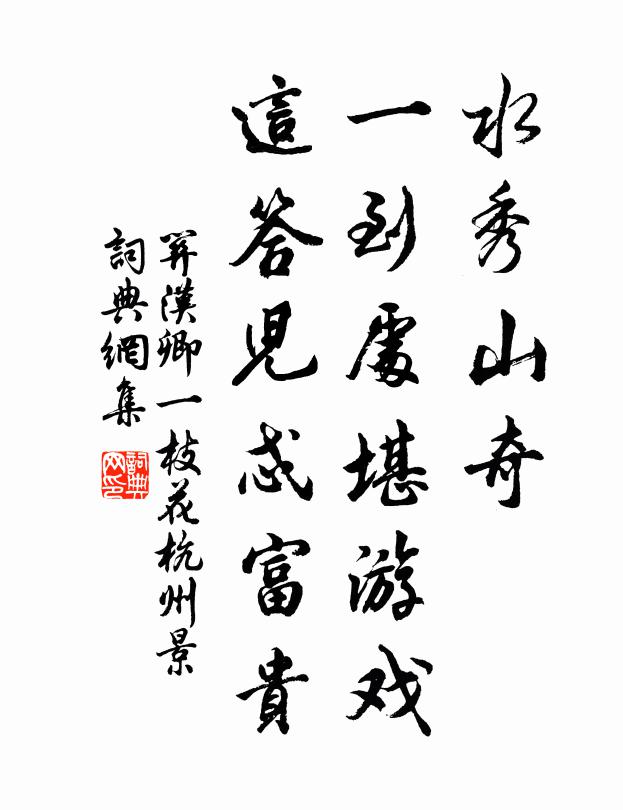 水秀山奇
一到處堪游戏
這答兒忒富貴
關漢卿一枝花杭州景
詞典網集
詞典网印